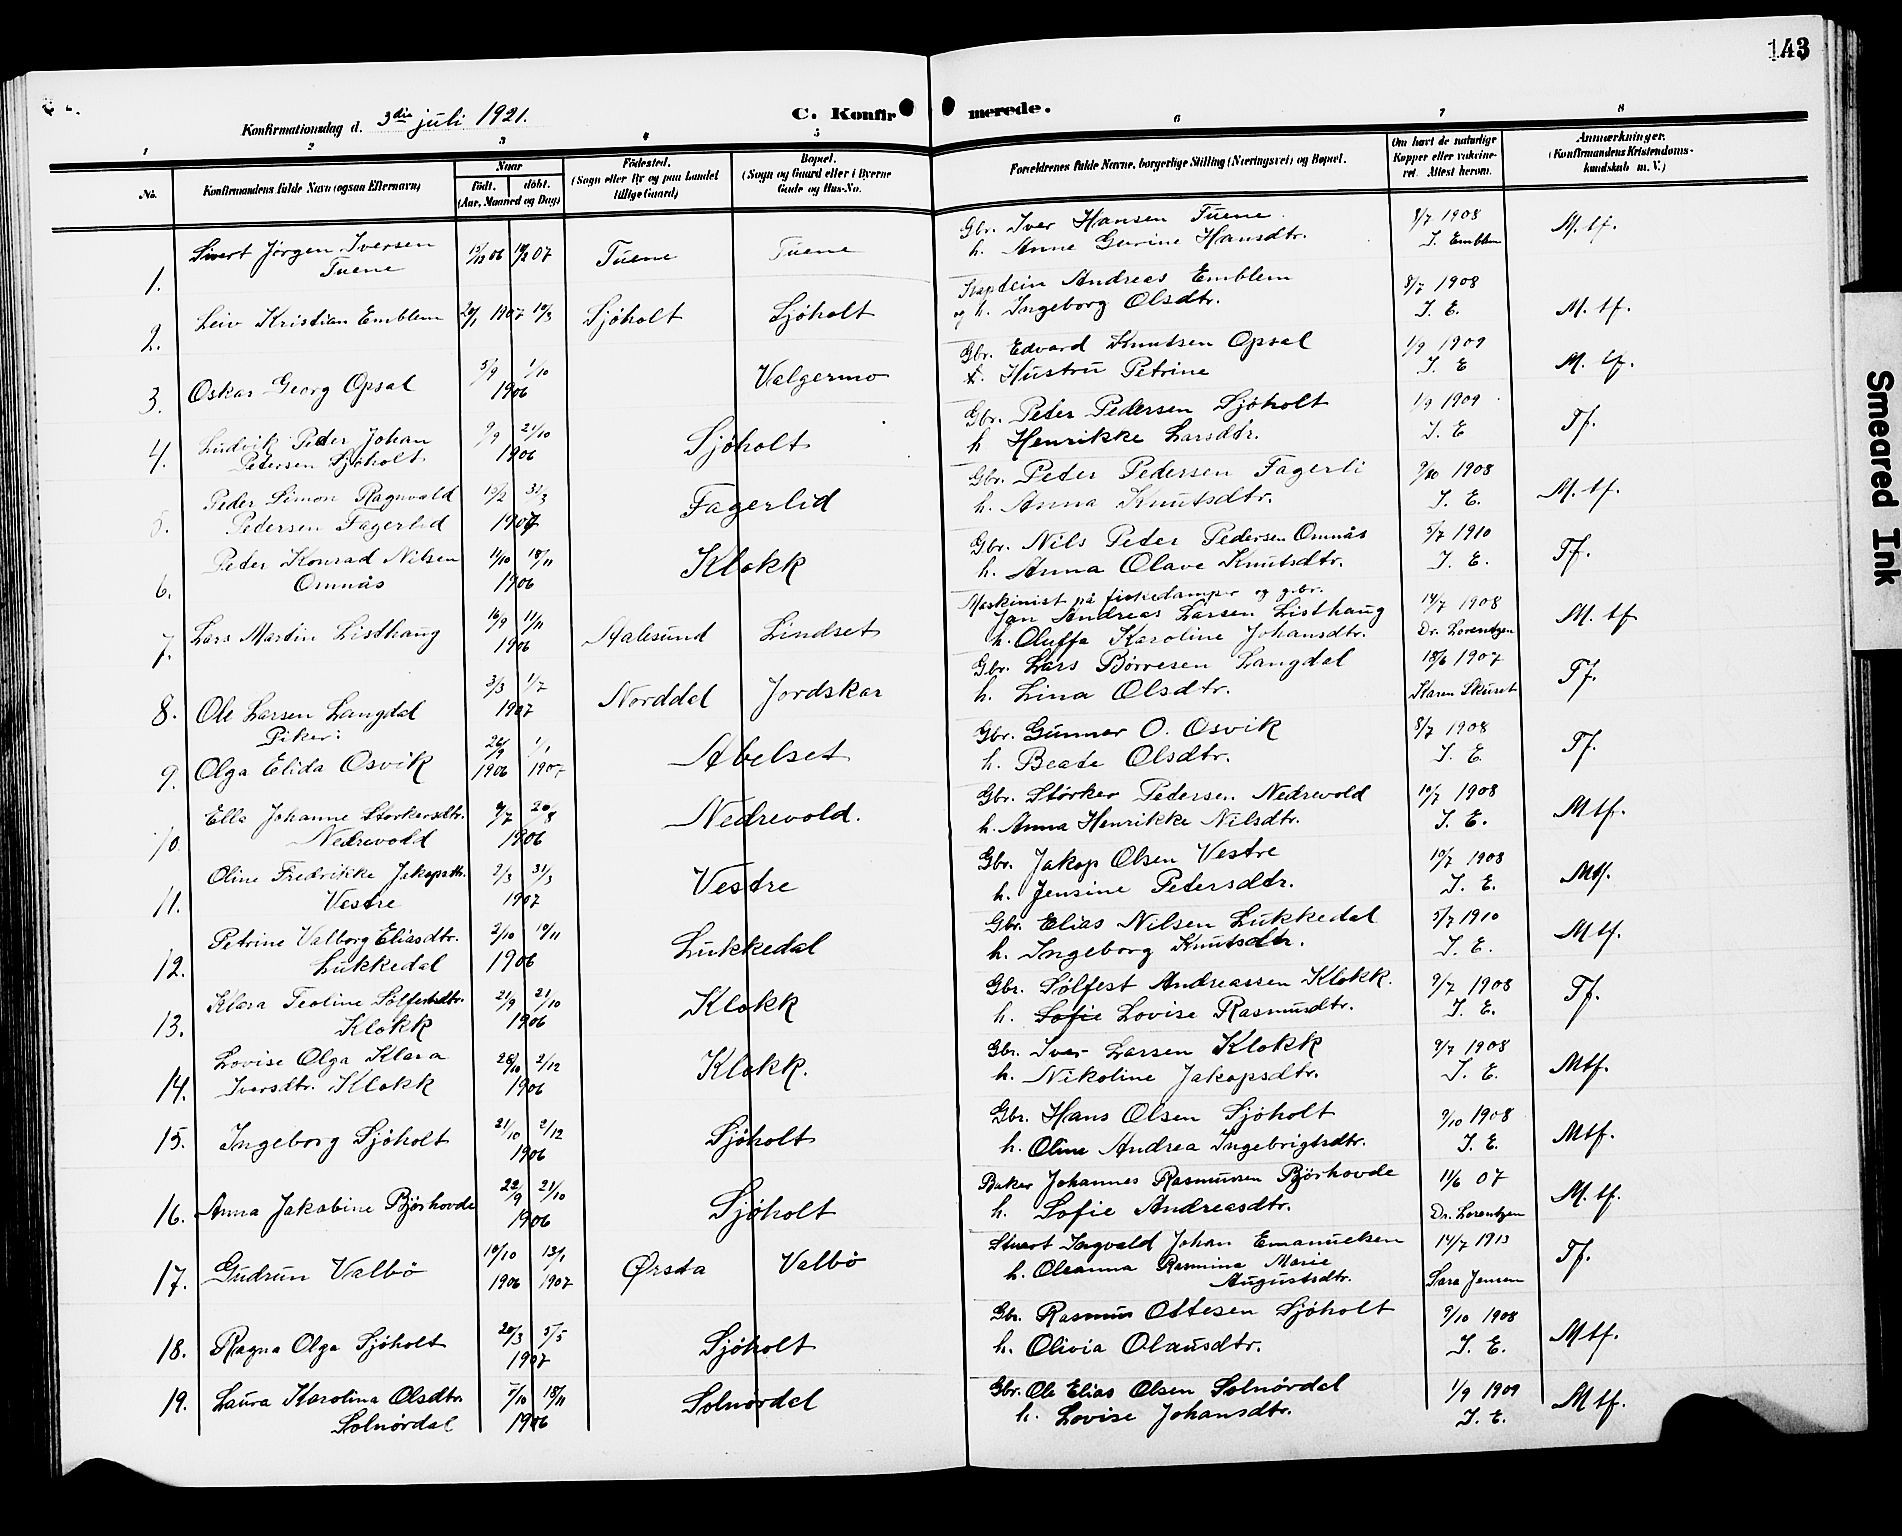 143
Konfirmationsdag d. 3die juli 1921. C. Konfirmerede.
1 2 3 4 5 6 7 8
No. Konfirmandens fulde Navn (ogsaa Efternavn) Naar født. døbt. (Aar, Maaned og Dag) Fødested. (Sogn eller By og paa Landet tillige Gaard) Bopæl. (Sogn og Gaard eller i Byerne Gade og Hus-No. Forældrenes fulde Navne, borgerlige Stilling (Næringsvei) og Bopæl. Om havt de naturlige Kopper eller vakcineret. Attest herom. Anmærkninger. (Konfirmandens Kristendomskundskab m. V.)
Sivert Jørgen Iversen 06 07 Tuene Tuene Gbr. Iver Hansen Tuene 8/7 1908 M. tf.
1. Tuene h. Anne Gurine Hansdtr. I. Emblem
2. Leiv Kristian Emblem 1907 Sjøholt Sjøholt Kaptein Andreas Emblem 8/7 1908 M. tf.
og h. Ingeborg Olsdtr. I. E.
3. Oskar Georg Opsal 5/9 1/10 Valgermo Gbr. Edvard Knutsen Opsal 1/9 1909 M. tf.
1906 Hustru Petrine I. E
4. Ludvik Peder Johan 9/9 21/10 Sjøholt Gbr. Peter Pedersen Sjøholt 1/9 1909 Tf.
Petersen Sjøholt. 1906 h. Henrikke Larsdtr. I. E
5. Peder Simon Ragnvald 31/3 Fagerlid Gbr. Peter Pedersen Fagerli 9/10 1908 M. tf.
Pedersen Fagerlid 1907 h. Anna Knutsdtr. I. E.
6. Peter Konrad Nilsen 11/10 18/11 Klokk Gbr. Nils Peter Pedersen Omnås 5/7 1910 Tf.
Omnås 1906 h. Anna Olave Knutsdtr. I. E.
7. Lars Martin Listhaug 16/9 11/11 Aalesund Lindset Maskinist på fiskedamper og gbr. 14/7 1908 M. tf
1906 Jan Andreas Larsen Listhaug Dr. Lorentzen
h. Oluffa Karoline Johansdtr.
8. Ole Larsen Langdal 3/3 1/7 Norddal Jordskar Gbr. Lars Børresen Langdal 18/6 1907 Tf.
1907 h. Lina Olsdtr. Karen Skuset
Piker:
9. Olga Elida Osvik 26/9 1/1 Abelset Gbr. Gunnar O. Osvik 8/7 1908 Tf.
1906 1907 h. Beate Olsdtr. I. E.
10. Ella Johanne Størkersdtr. 9/7 Nedrevold. Gbr. Størker Pedersen Nedrevold 10/7 1908 Mtf.
Nedrevold 1906 h. Anna Henrikke Nilsdtr. I. E.
11. Oline Fredrikke Jakopsdtr. 2/3 31/3 Vestre Gbr. Jakop Olsen Vestre 10/7 1908 Mtf.
Vestre 1907 h. Jensine Petersdtr. I. E.
12. Petrine Valborg Eliasdtr. 2/10 Lukkedal Gbr. Elias Nilsen Lukkedal 5/7 1910 Mtf.
Lukkedal 1906 h. Ingeborg Knutsdtr. I. E.
13. Klara Teoline Sølfestsdtr. 21/9 21/10 Klokk Gbr. Sølfest Andreassen Klokk. 9/7 1908 Tf.
Klokk 1906 h. Sofie Lovise Rasmusdtr. I. E.
14. Lovise Olga Klara 26/10 2/12 Klokk. Gbr. Iver Larsen Klokk 9/7 1908 Mtf.
Iversdtr. Klokk 1906 h. Nikoline Jakopsdtr. I. E.
15. Ingeborg Sjøholt 21/10 2/12 Sjøholt Gbr. Hans Olsen Sjøholt 9/10 1908 Mtf.
1906 h. Oline Andrea Ingebrigtsdtr. I. E.
16. Anna Jakobine Bjørhovde 22/9 21/10 Sjøholt Baker Johannes Rasmussen Bjørhovde 11/6 07 M. tf.
1906 h. Sofie Andreasdtr. Dr. Lorentzen
17. Gudrun Valbø 10/10 13/1 Ørsta Valbø Stuert Ingvald Johan Emanuelsen 14/7 1913 Tf.
1906 1907 h. Oleanna Rasmina Marie Augustsdtr. Sara Jensen
18. Ragna Olga Sjøholt 20/3 5/5 Sjøholt Gbr. Rasmus Ottesen Sjøholt 9/10 1908 Mtf.
1907 h. Olivia Olausdtr. I. E.
19. Laura Karolina Olsdtr. 18/11 Solnørdal Gbr. Ole Elias Olsen Solnørdal 1/9 1909 Mtf.
Solnørdal 1906 h. Lovise Johansdtr. I. E.
Smeared Ink